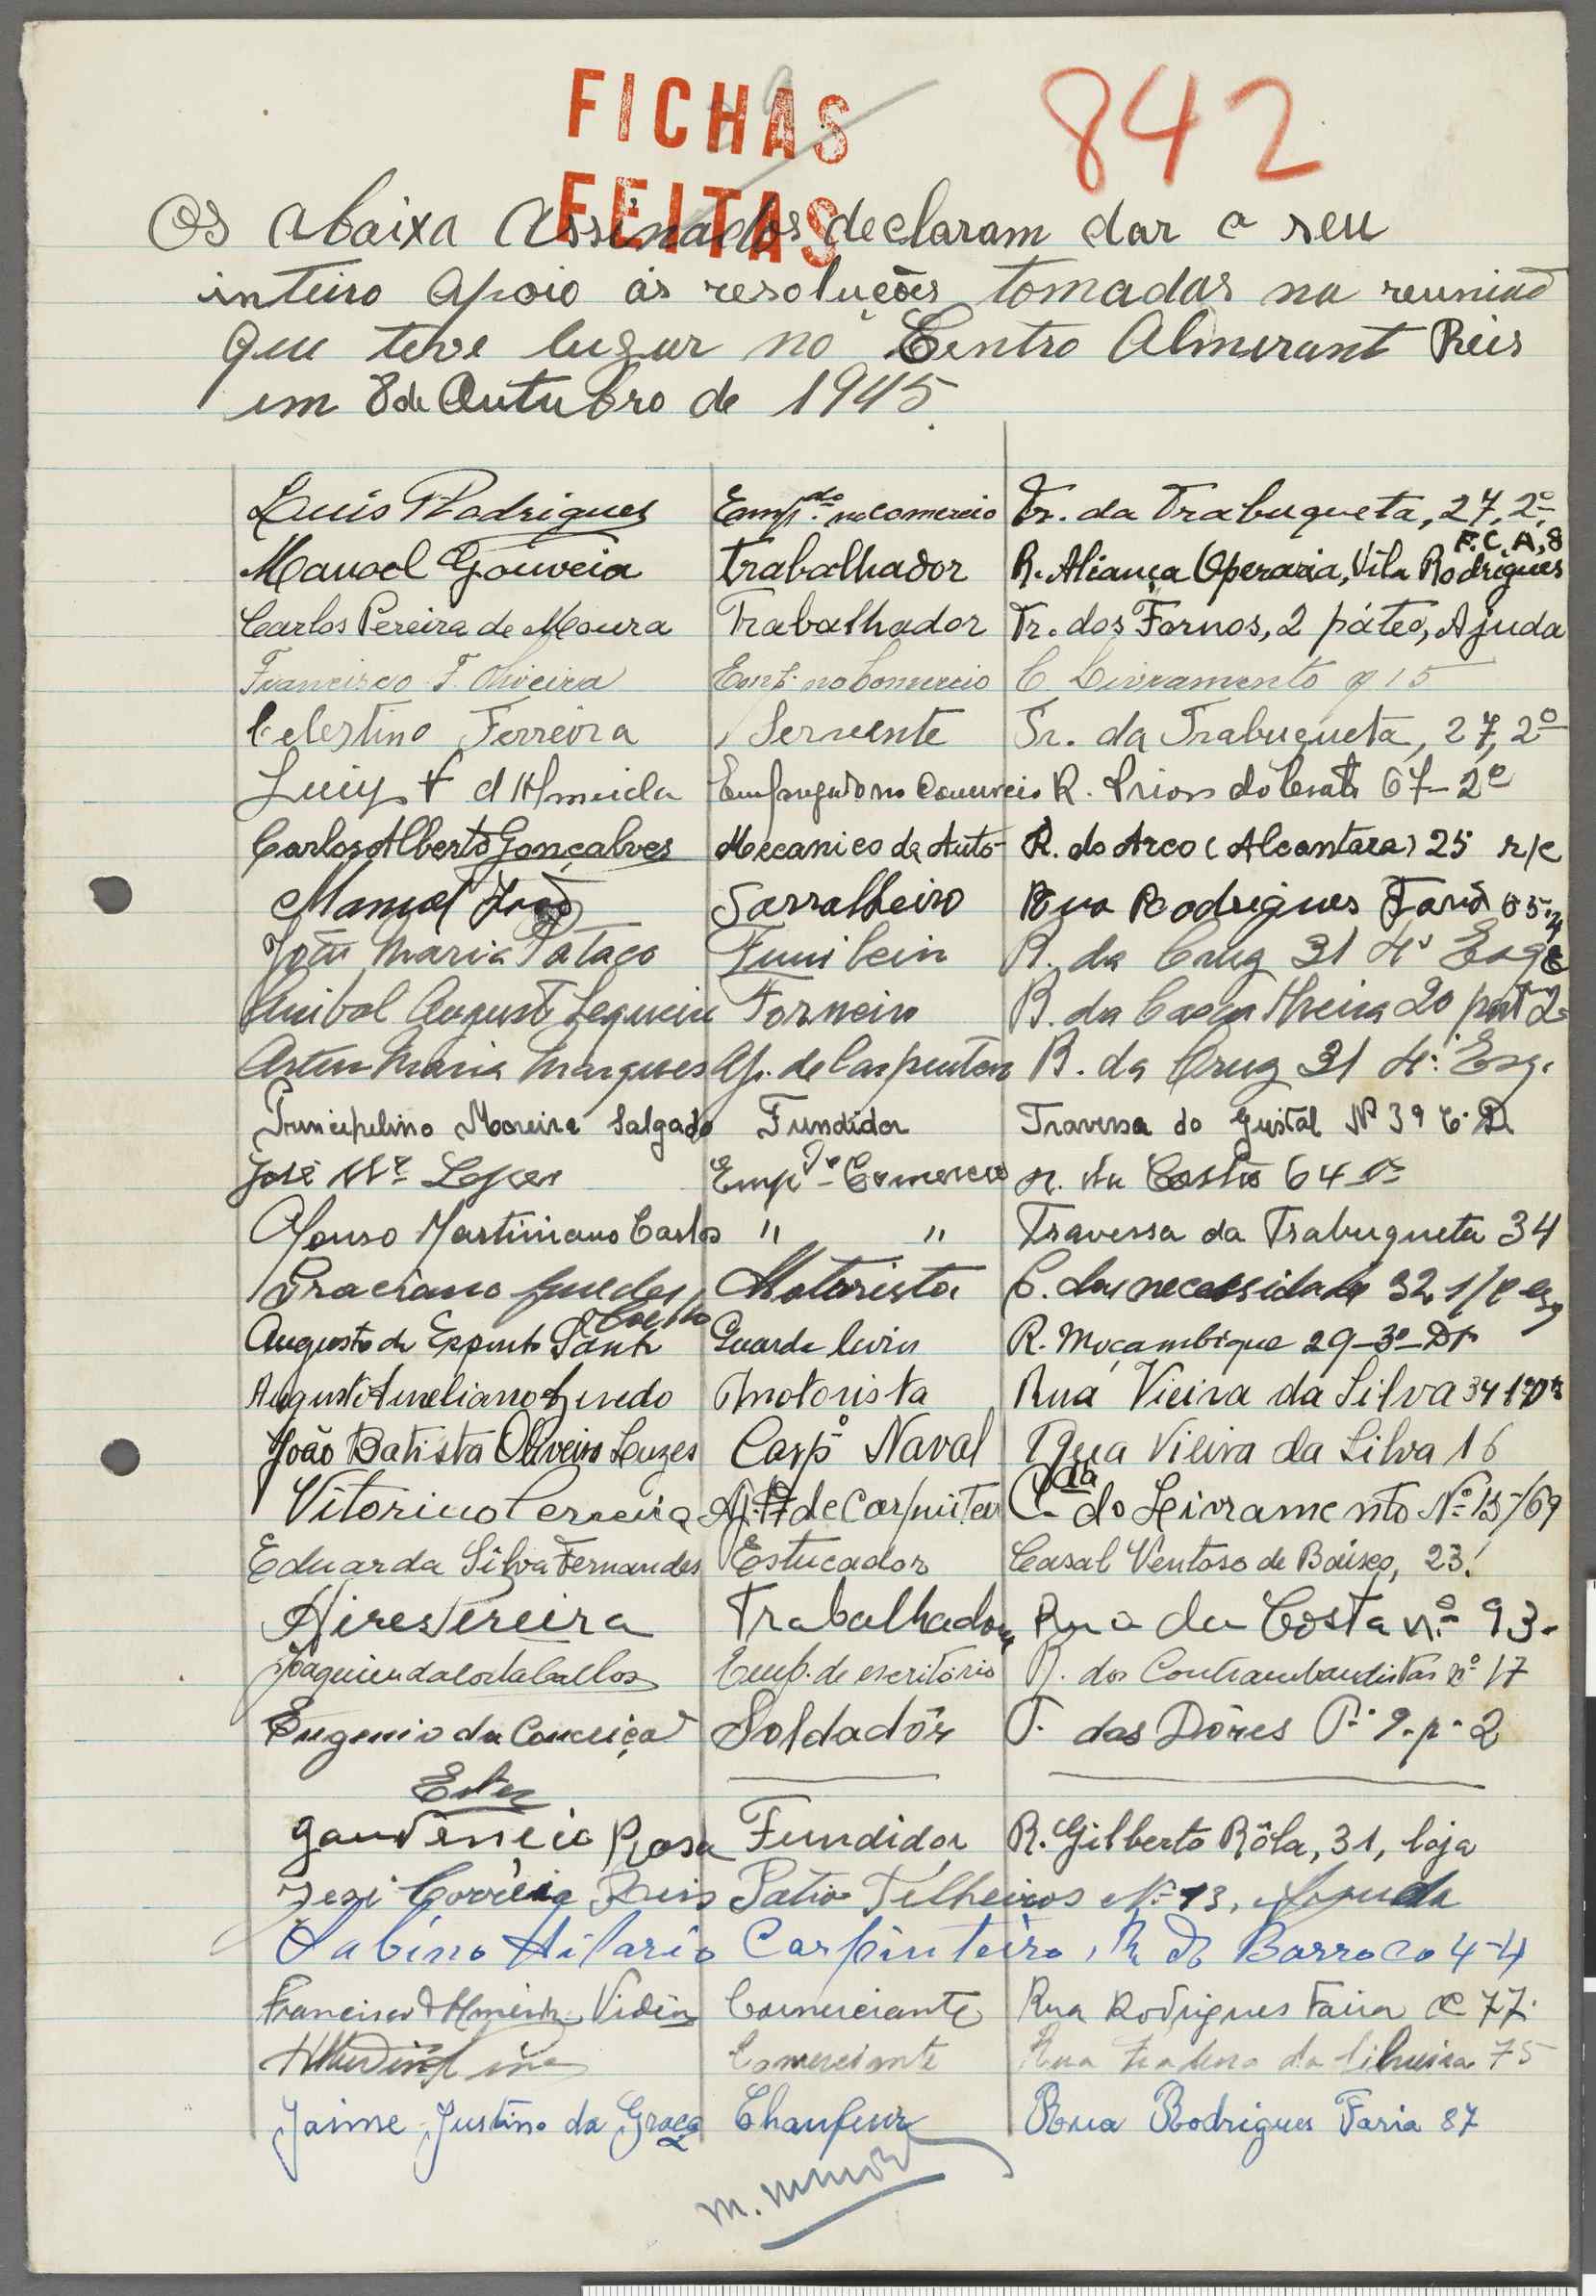 FICHAS
842
FEITAS
Os abaixa assinados declaram dar o seu
inteiro apoio ás resoluções tomadas na reunião
que teve lugar no Centro Almirant Reis
em 8 de Outubro de 1945.
Luís Rodrigues Emp.do no comercio Tr. da Trabuqueta, 27, 2º
F.C.A, 8
Manoel Gouveia Trabalhador R. Aliança Operaria, Vila Rodrigues
Carlos Pereira de Moura Trabalhador Tr. dos Fornos, 2 páteo, Ajuda
Francisco F. Oliveira Emp. no Comercio C. Livramento 15
Celestino Ferreira Servente Tr. da Trabuqueta, 27, 2º
Luiz d'Almeida Empregado no Comercio R. Prior do Crato 67-2º
Carlos Alberto Gonçalves Mecanico de Auto R. do Arco (Alcantara) 25 r/c
Manuel João Sarralheiro Rua Rodrigues Faria
João Maria Pataco Funileiro R. da Cruz 31 4º Esqº
Anibal August Sequeira Torneiro B. da Cascalheira 20 port 2
Artur Maria Marques Ap. de Carpinteiro R. da Cruz 31 4º Esq.
Moreira Salgado Fundidor Travessa do Giestal Nº 39
José Mª Lopes Emp.do Comercio r. da Costa 64
Afonso Martiniano Carlos " " Travessa da Trabuqueta 34
Graciano Guedes Motorista C. das necessidades 32 r/c esq
Coelho
Augusto do Espirito Santo Guarda livros R. Moçambique 29-3º-Dt
Augusto Aureliano Motorista Rua Vieira da Silva 34 1º Dt
João Batista Oliveira Luzes Carpº Naval Rua Vieira da Silva 16
Vitorino Ferreira Aj. de Carpinteiro C.da do Leivramento Nº 13/69
Eduarda Silva Fernandes Estucador Casal Ventoso de Baixo, 23.
Aires Pereira Trabalhador Rua da Costa nº 93.
Joaquim da Costa Emp. de escritório R. dos Contrabandistas nº 17
Eugenio da Conceição Soldadôr T. das Dôres P. 9. p. 2
Ester
Gaudencio Rosa Fundidor R. Gilberto Rôla, 31, loja
Correia Reis Patio Telheiros Nº 13, Ajuda
Sabino Hilario Carpinteiro, R. do Barroco 4-4
Francisco d'Almeida Comerciante Rua Rodrigues Faria 77
Comerciante Rua 75
Jaime Justino da Graça Chaufeur Rua Rodrigues Faria 87